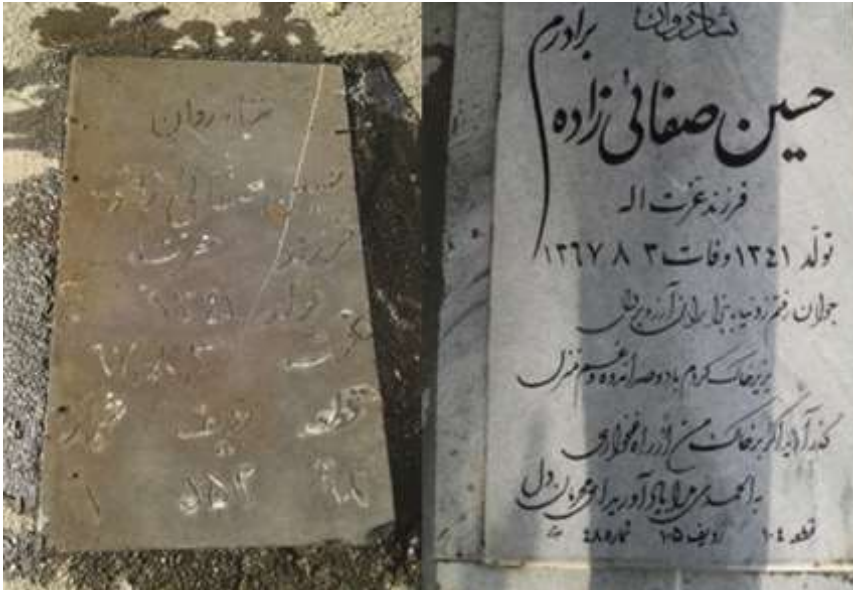 شادروان
حسین صفائی زاده
فرزند عزت
تولد ۱۳۴۱
قطعه ردیف شماره
شادروان
برادرم
حسین صفائی زاده
فرزند عزت اله
تولد ۱۳٤۱ وفات ۳ ۸ ۱۳٦۷
جوان رفتم ز دنیا با هزاران آرزو بر دل
بزیر خاک کردم با دو صد اندوه و غم منزل
گذر آرید اگر بر خاک من از راه غمخواری
به الحمدی مرا یاد آورید ای مهربان دل
قطعه ۱۰٤ ردیف ۱۰۵ شماره ٤۸